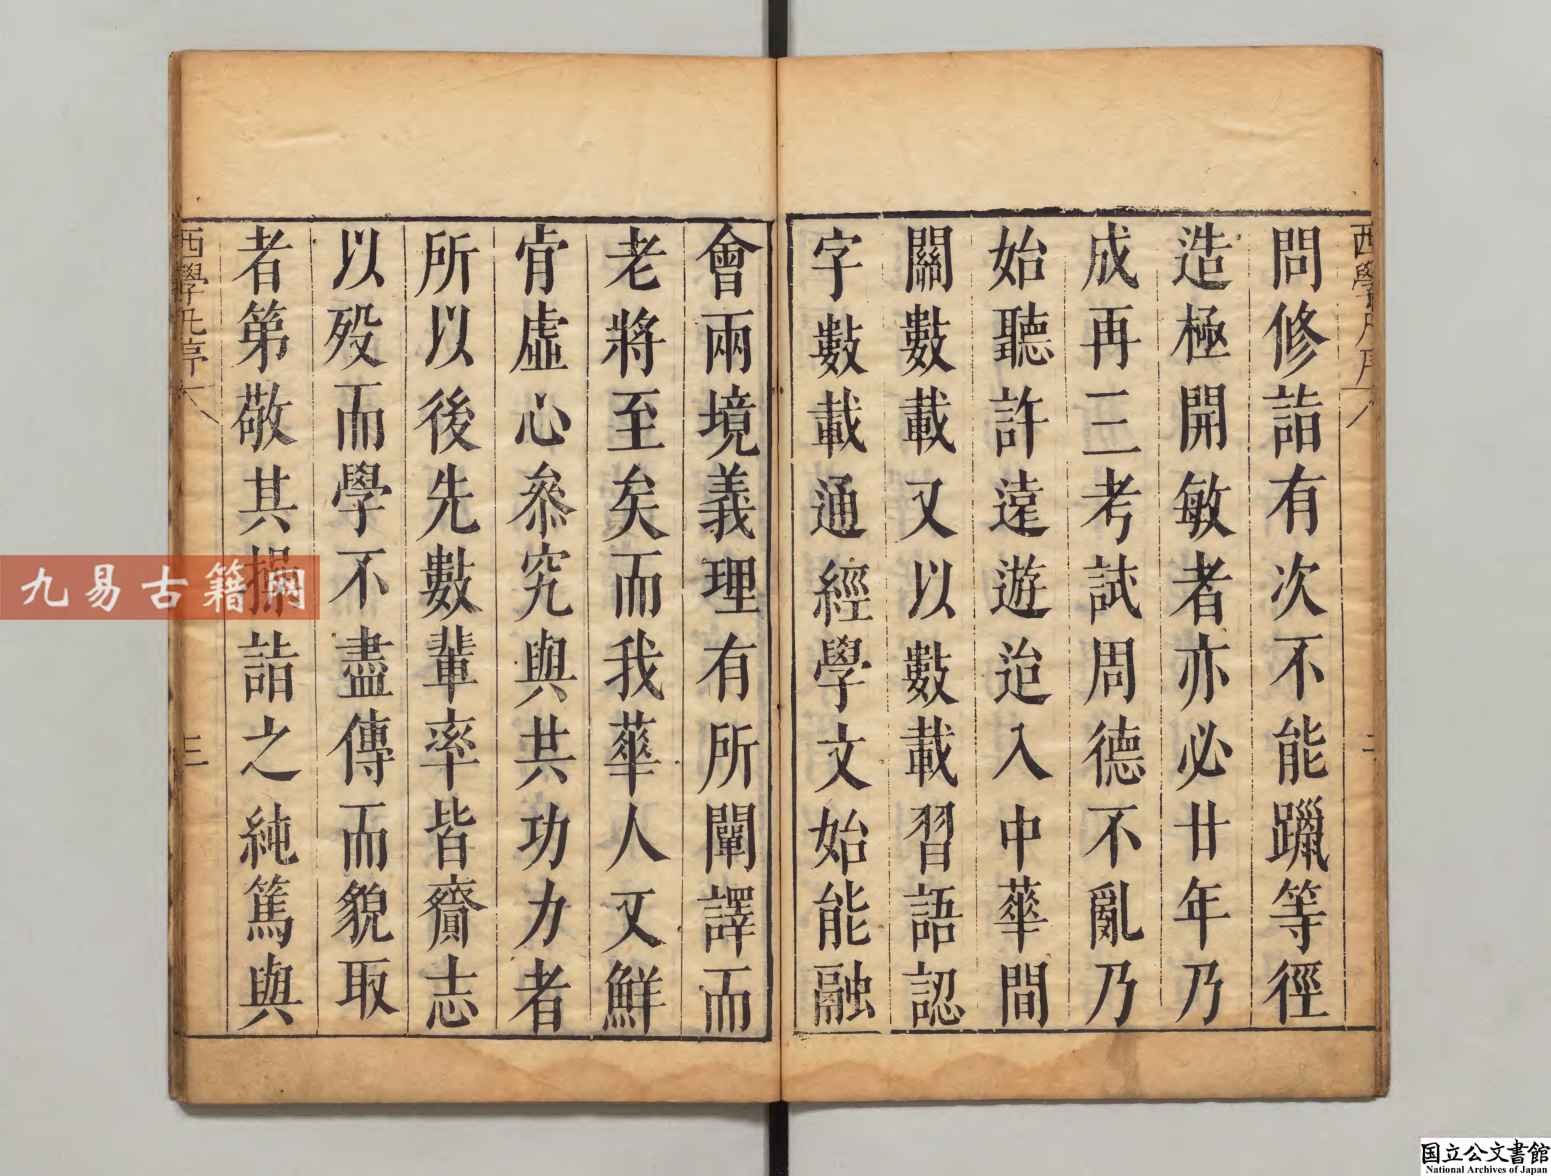 問修詣有次不能躐等徑
造極開敏者亦必廿年乃
成再三考試周德不亂乃
始聽許遠遊迨入中華間
關數載又以數載習語認
字數載通經學文始能融
會兩境義理有所闡譯而
老將至矣而我華人又鮮
肯虛心叅究與共功力者
所以後先數輩率皆齎志
以歿而學不盡傳而貌取
者第敬其操詣之純篤與
西學凡序
三
九易古籍网
国立公文書館
National Archives of Japan